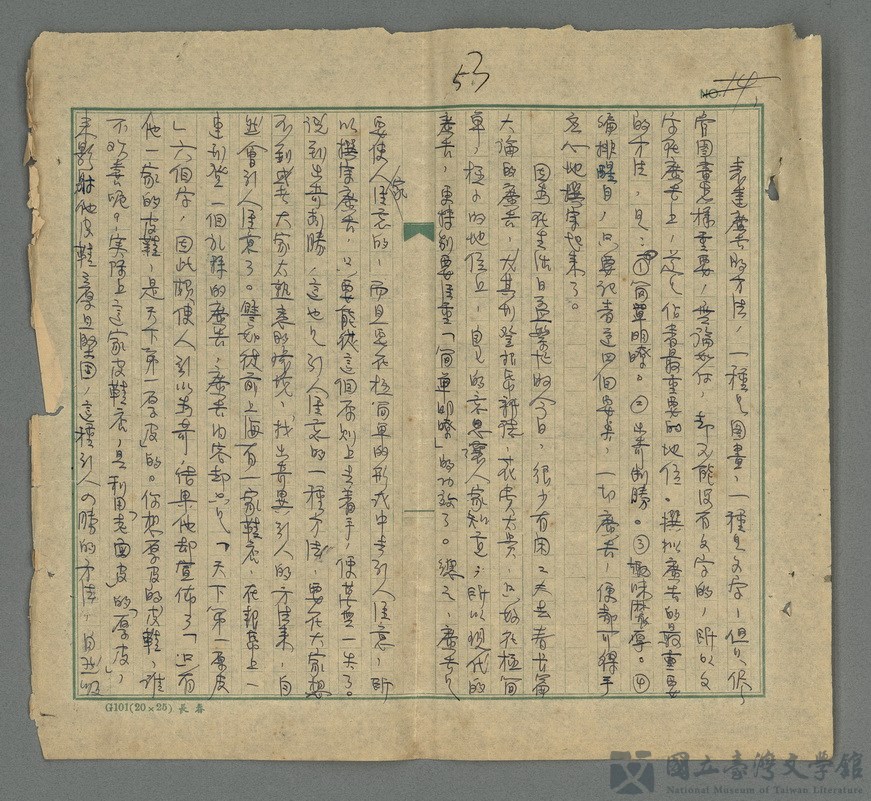 53
NO. 14
表達廣告的方法，一種是圖畫，一種是文字，但是，儘
管圖畫怎樣重要，無論如何，却不能沒有文字的，所以文
字在廣告上，是佔着最重要的地位。撰擬廣告的最重要
的方法，是：①簡單明瞭。②出奇制勝。③趣味豐厚。④
編排醒目，只要把着這四個要矣，一切廣告，便都可得手
應心地撰寫起來了。
因為在生活日益繁忙的今日，很少有閑工夫去看長篇
大論的廣告，尤其刋登報紙雜誌，花費太貴，只好在極簡
單，極小的地位上，自己的意思讓人家知道，所以現代的
廣告，更特別要注重「簡單明瞭」的功效了。總之，廣告是
要使人家注意的，而且要在極簡單的形式中去引人注意，所
以撰寫廣告，只要能從這個原則上去着手，便萬無一失了。
說到出奇制勝，這也是引人注意的一種方法，要在大家想
不到或者大家太熟悉的環境，找出奇異引人的方法來，自
然會引人注意了。譬如從前上海有一家鞋店，在報紙上一
連刋登一個孔的廣告，廣告內容却只是「天下第一厚皮
」六個字，因此頗使人引以為奇，結果他却宣佈了「只有
他一家的皮鞋，是天下第一厚皮」的。你想厚皮的皮鞋，誰
不欢喜呢？，实際上這家皮鞋店，是利用老「面皮」的「厚皮」，
來影射他皮鞋之厚且堅固，這種引人入勝的方法，自然吸
G101(20×25) 長春
國立臺灣文學館
National Museum of Taiwan Literature